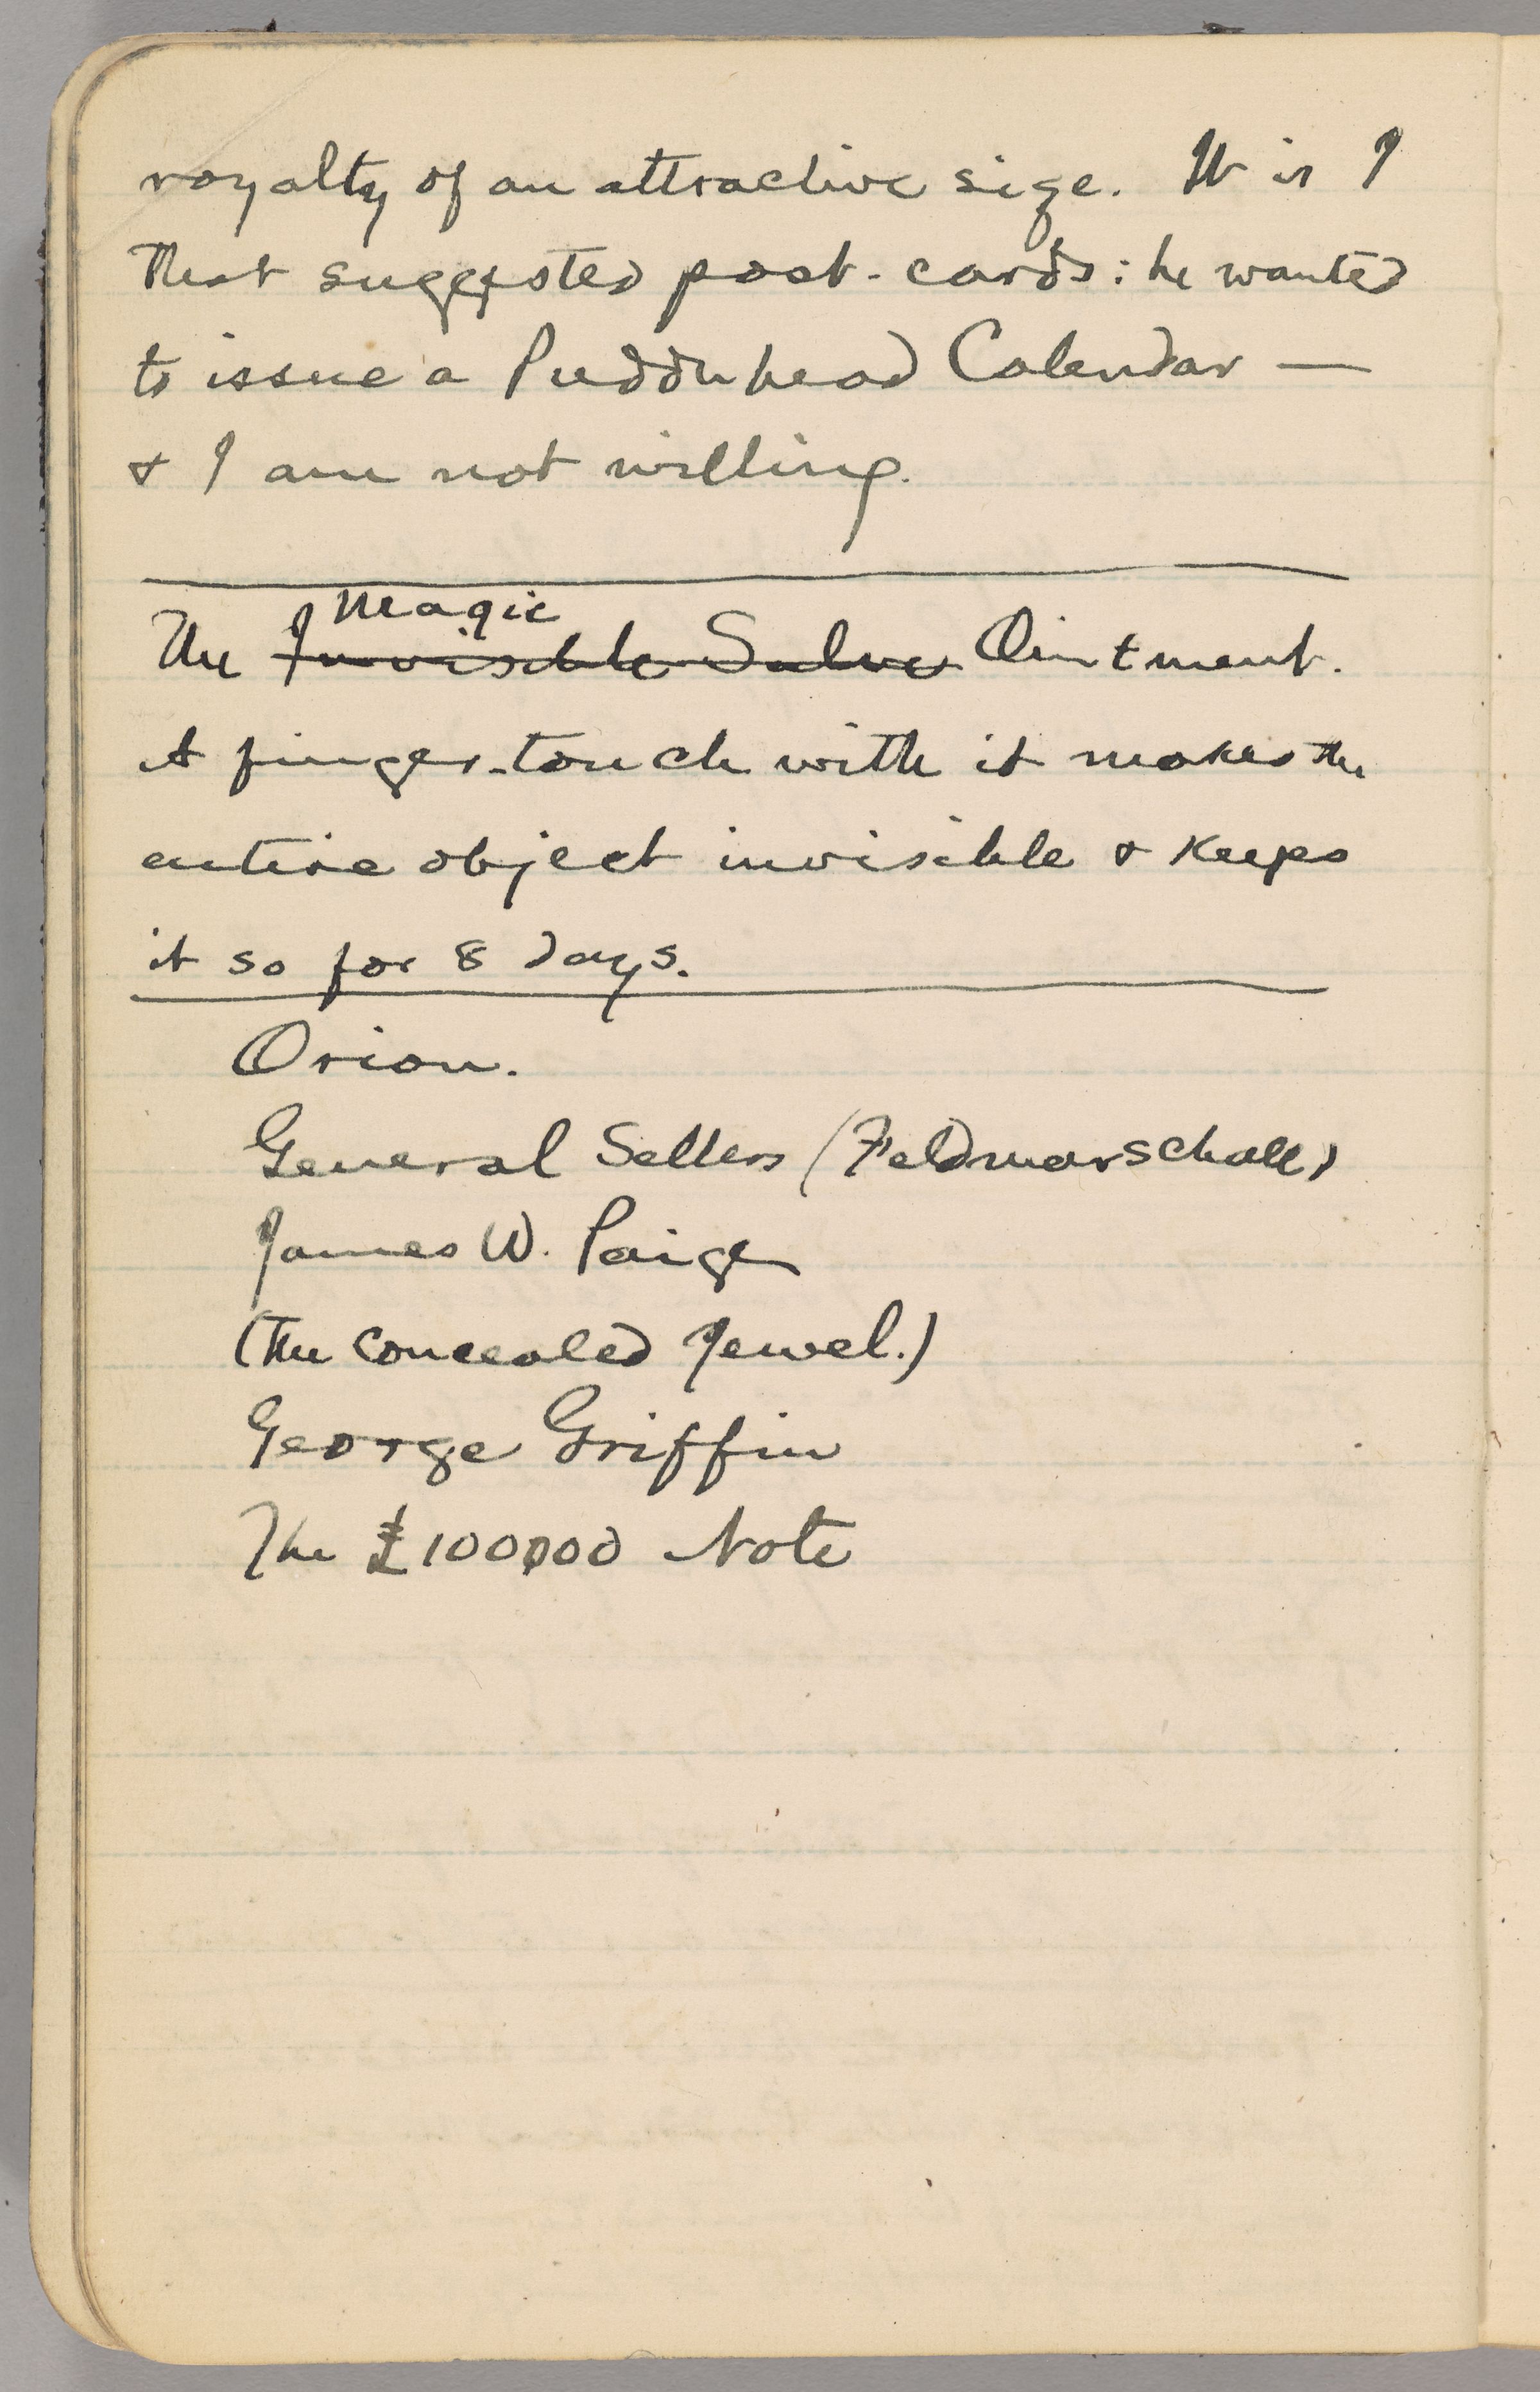 royalty of an attractive size. It is I
that suggested post-cards: he wanted
to issue a Puddnhead Calendar —
& I am not willing.
Magic
The Invisible Salve Ointment.
A finger-touch with it makes the
entire object invisible & keeps
it so for 8 days.
Orion.
General Sellers (Feldmarschall)
James W. Paige
(The concealed Jewel.)
George Griffin
The £100,000 Note